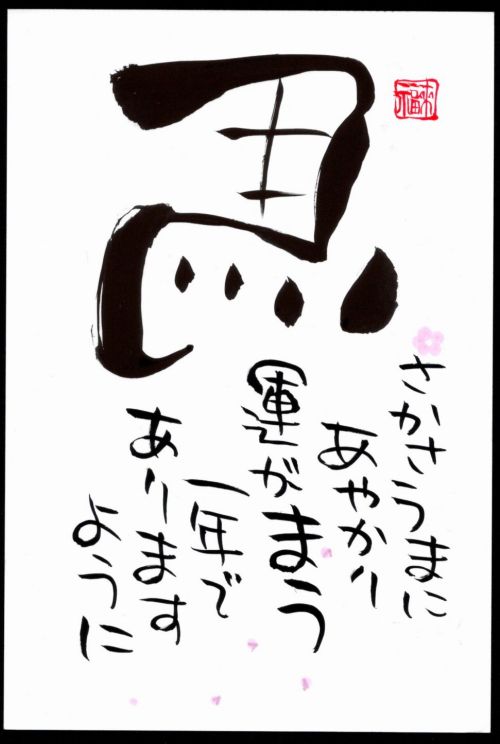 馬
さかさうまに
あやかり
運がまう
一年で
あります
ように